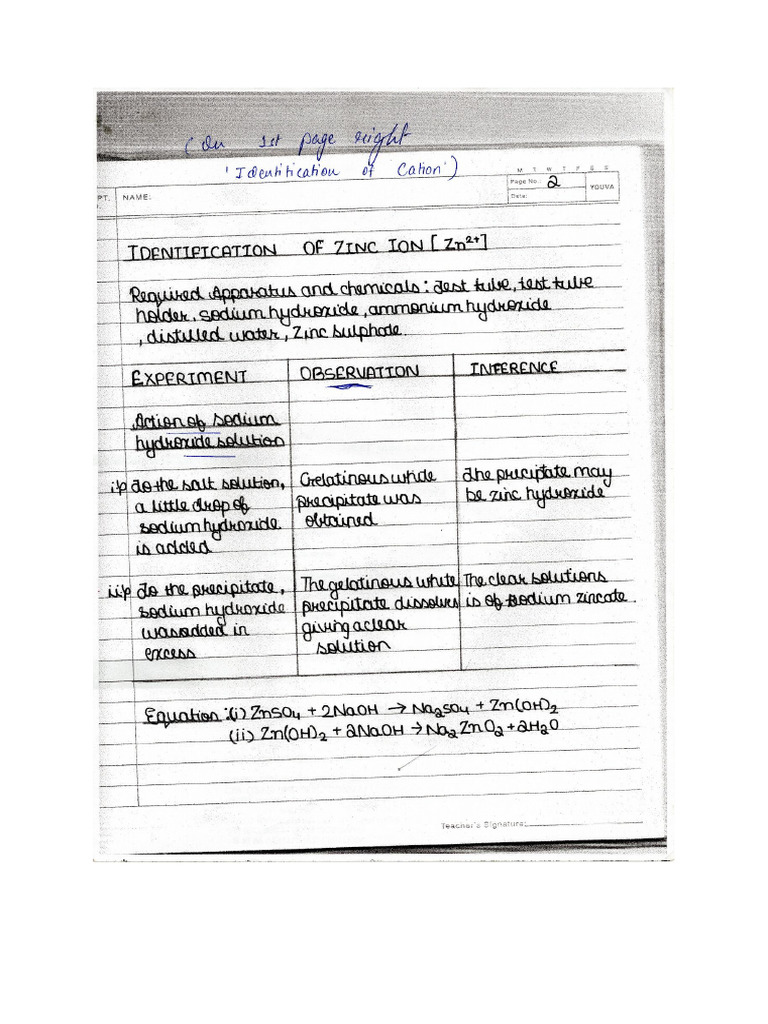 (On 1st page right
'Identification of Cation')
M T W T F S S
Page No.: 2
YOUVA
Date:
PT. NAME:
IDENTIFICATION OF ZINC ION [Zn²⁺]
Required Apparatus and chemicals: Test tube, test tube
holder, sodium hydroxide, ammonium hydroxide
, distilled water, Zinc sulphate.
EXPERIMENT OBSERVATION INFERENCE
Action of sodium
hydroxide solution
i) To the salt solution, Gelatinous white The preciptate may
a little drop of precipitate was be zinc hydroxide
sodium hydroxide obtained
is added
ii) To the precipitate, The gelatinous white The clear solutions
sodium hydroxide precipitate dissolves is of sodium zincate.
was added in giving a clear
excess solution
Equation: (i) ZnSO₄ + 2NaOH → Na₂SO₄ + Zn(OH)₂
(ii) Zn(OH)₂ + 2NaOH → Na₂ZnO₂ + 2H₂O
Teacher's Signature: